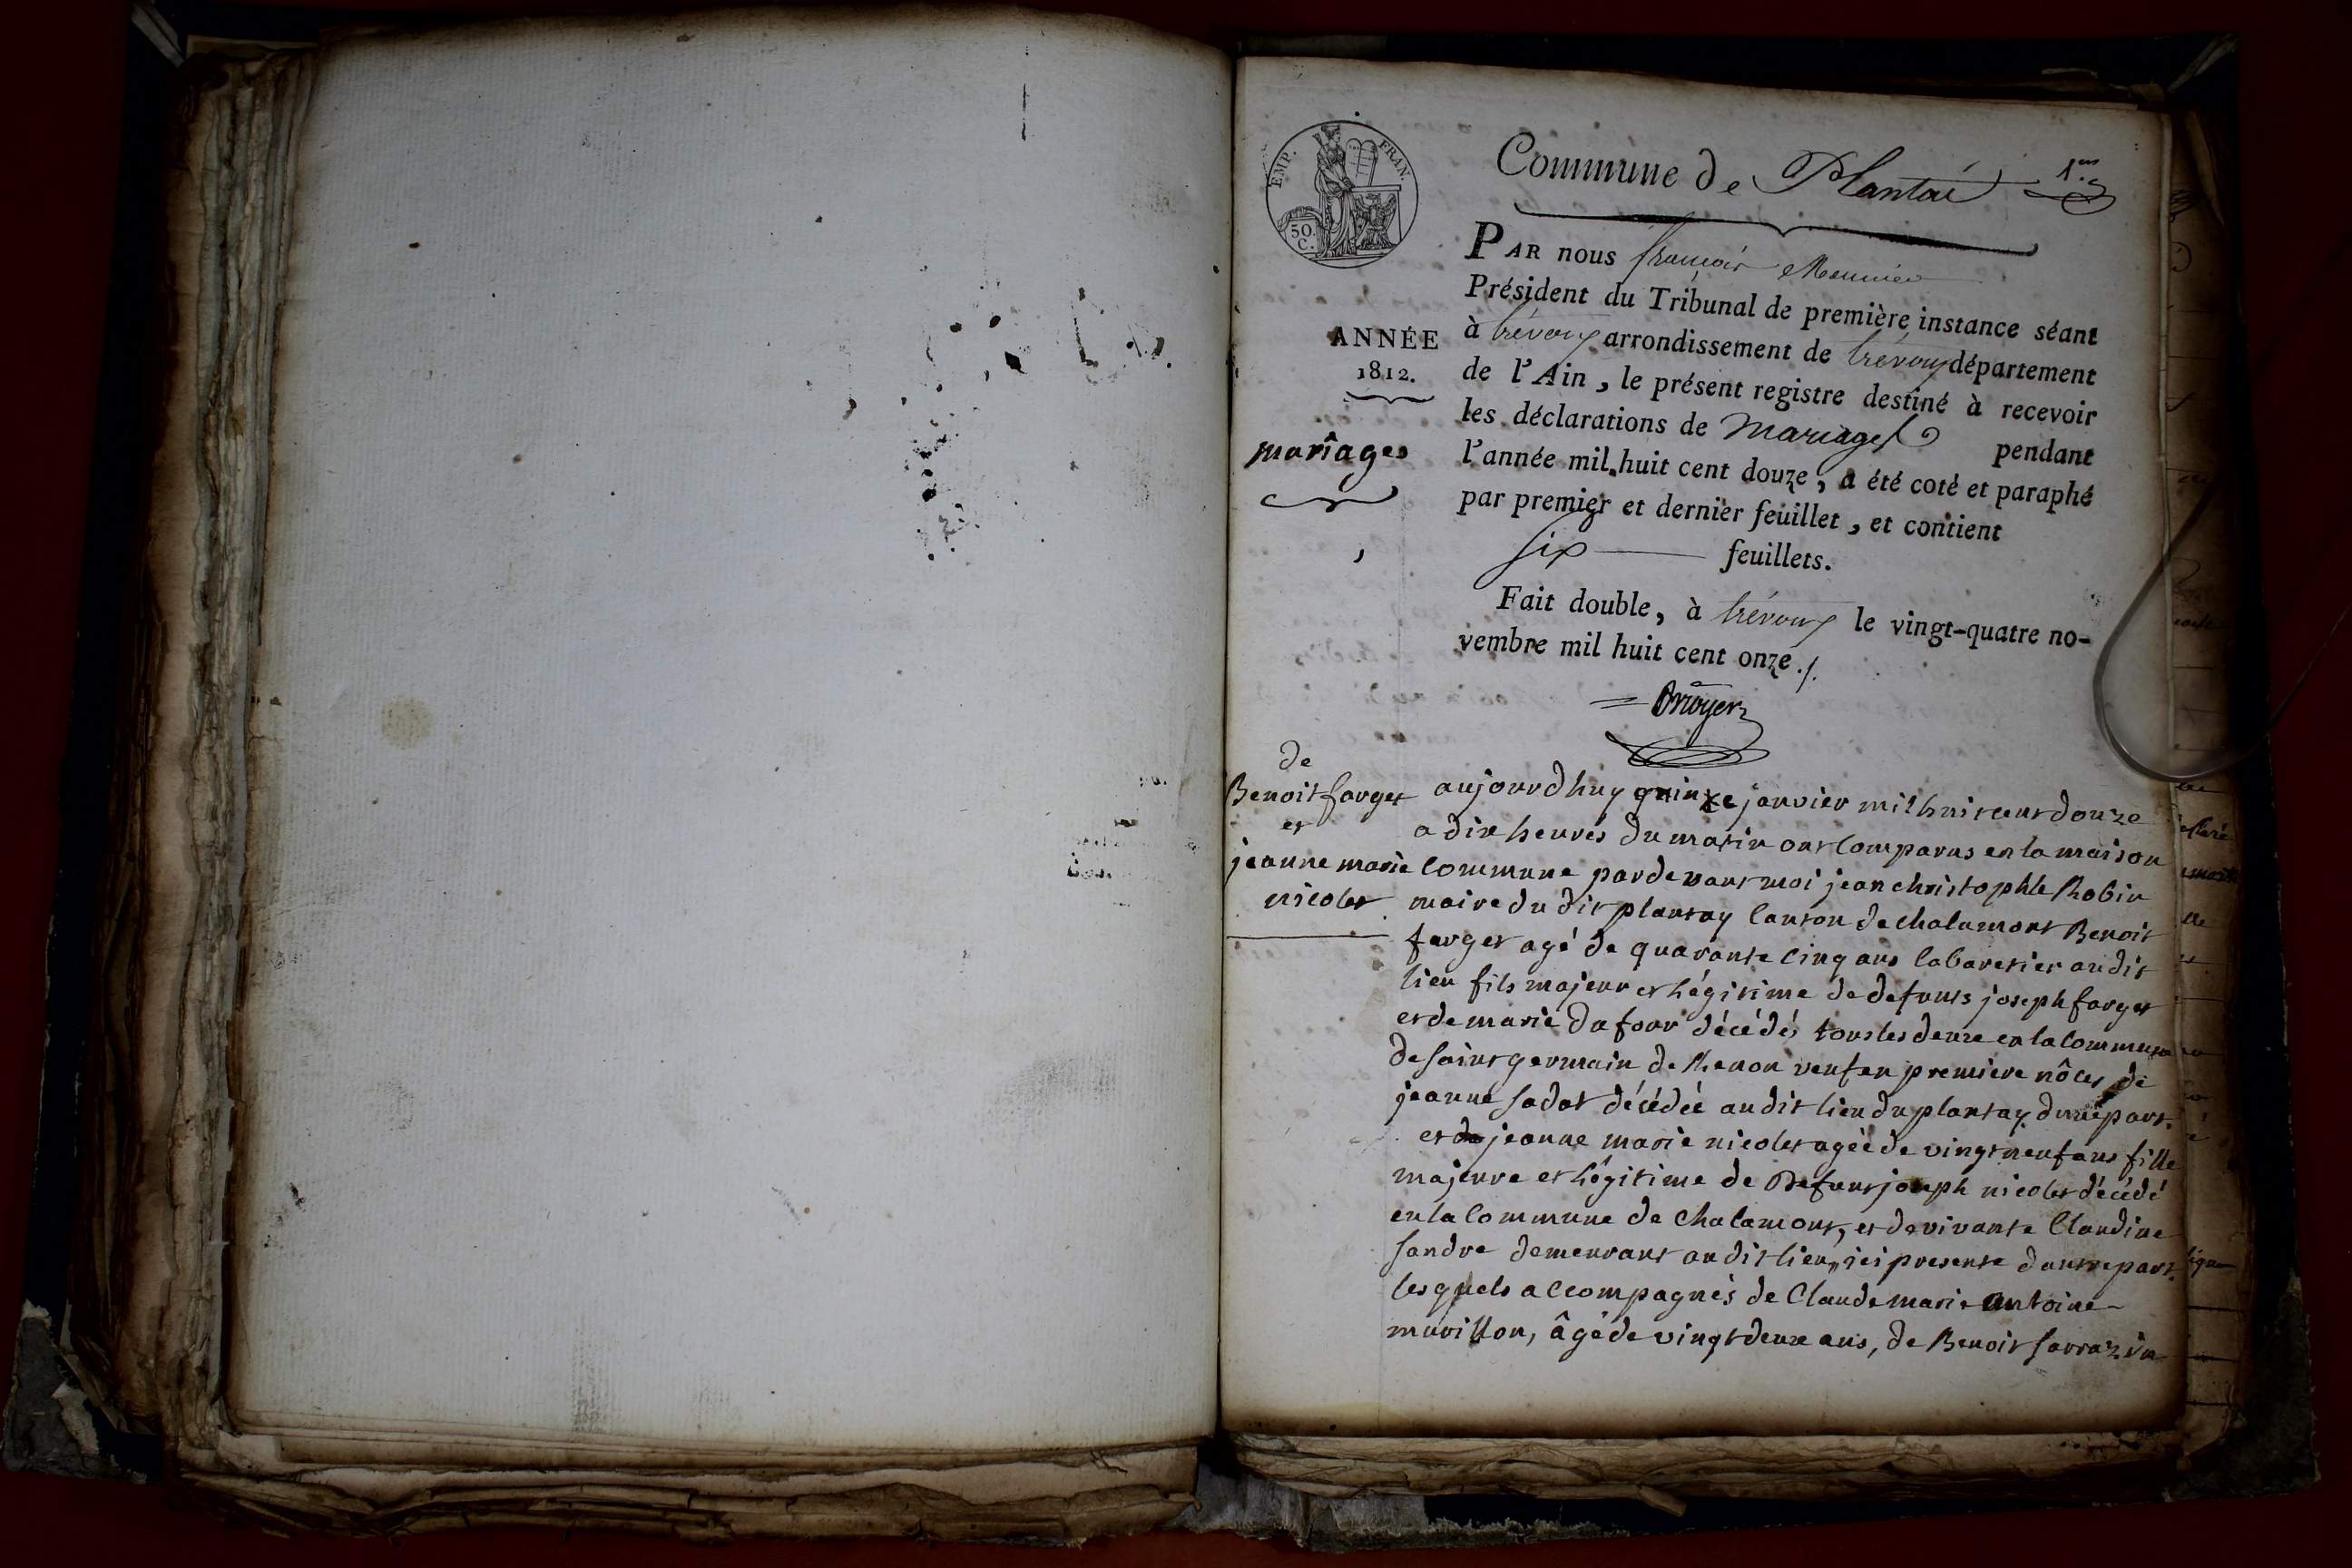 EMP. FRAN.
50.
C.
Commune de Plantai 1.er
PAR nous françois Monnier
Président du Tribunal de première instance séant
à trévoux arrondissement de trévoux département
de l'Ain, le présent registre destiné à recevoir
les déclarations de Mariages pendant
l'année mil huit cent douze, a été coté et paraphé
par premier et dernier feuillet, et contient
six feuillets.
Fait double, à trévoux le vingt-quatre no-
vembre mil huit cent onze./.
ANNÉE
1812.
mariages
de
Benoit farget
et
jeanne marie
nicolet
aujourdhuy quinze janvier mil huit cent douze
a dix heures du matin ont comparus en la maison
commune pardevant moi jean christophle Robin
maire du dit plantay canton de chalamont Benoit
farget agé de quarante cinq ans cabaretier au dit
lieu fils majeur et légitime de defunts joseph farget
et de marie dufour décédés tous les deux en la commune
de saint germain de Renon veuf en premiere nôces de
jeanne sadot décédée au dit lieu du plantay dune part.
et jeanne marie nicolet agée de vingt neuf ans fille
majeure et légitime de Defunt joseph nicolet décédé
en la commune de chalamont, et de vivante Claudine
sandre demeurant au dit lieu, ici presente dautre part.
lesquels accompagnés de Claude marie antoine
murillon, âgé de vingt deux ans, de Benoit sarrazin